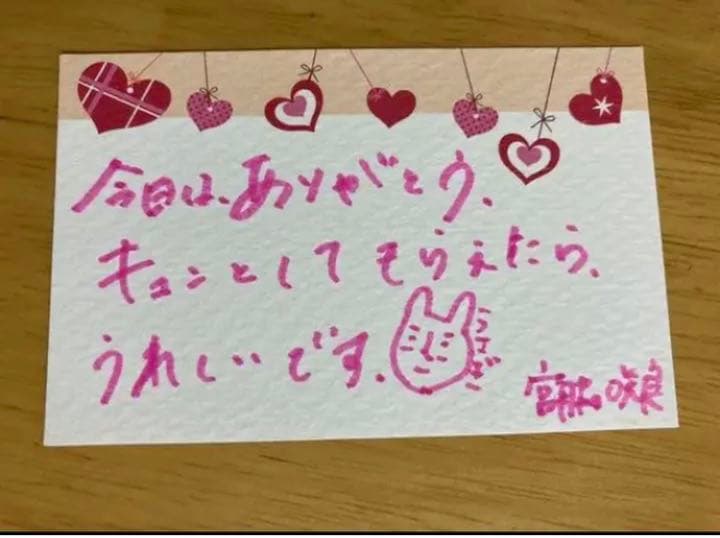 今日は、ありがとう、
キュンとしてもらえたら、
うれしいです、
うさぎ
宮脇咲良